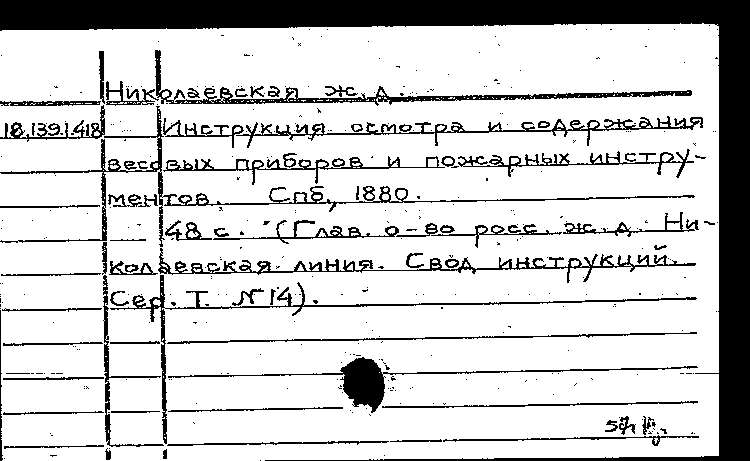 Николаевская ж.д.
18.139.1.418 Инструкция осмотра и содержания
весовых приборов и пожарных инстру-
ментов. Спб., 1880.
48 с. (Глав. о-во росс. ж.д. Ни-
колаевская линия. Свод инструкций.
Сер. Т. N 14).